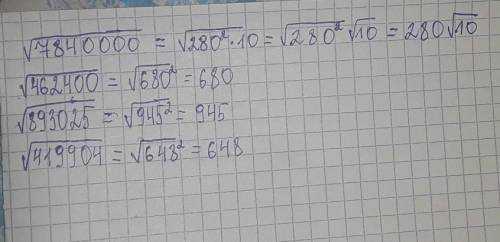 √7840000 = √280²·10 = √280² √10 = 280√10
√462400 = √680² = 680
√893025 = √945² = 945
√419904 = √648² = 648